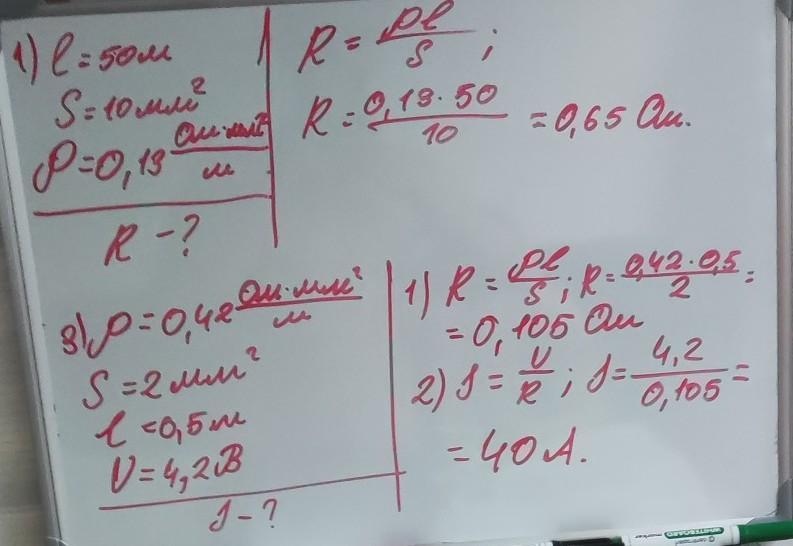 1) l = 50м
S = 10 мм²
ρ = 0,13 Ом·мм²/м
R - ?
R = ρl/S ;
R = 0,13 · 50/10 = 0,65 Ом.
3) ρ = 0,42 Ом·мм²/м
S = 2 мм²
l = 0,5 м
U = 4,2 В
J - ?
1) R = ρl/S ; R = 0,42 · 0,5/2 =
= 0,105 Ом
2) J = U/R ; J = 4,2/0,105 =
= 40 А.
WHITEBOARD
marker